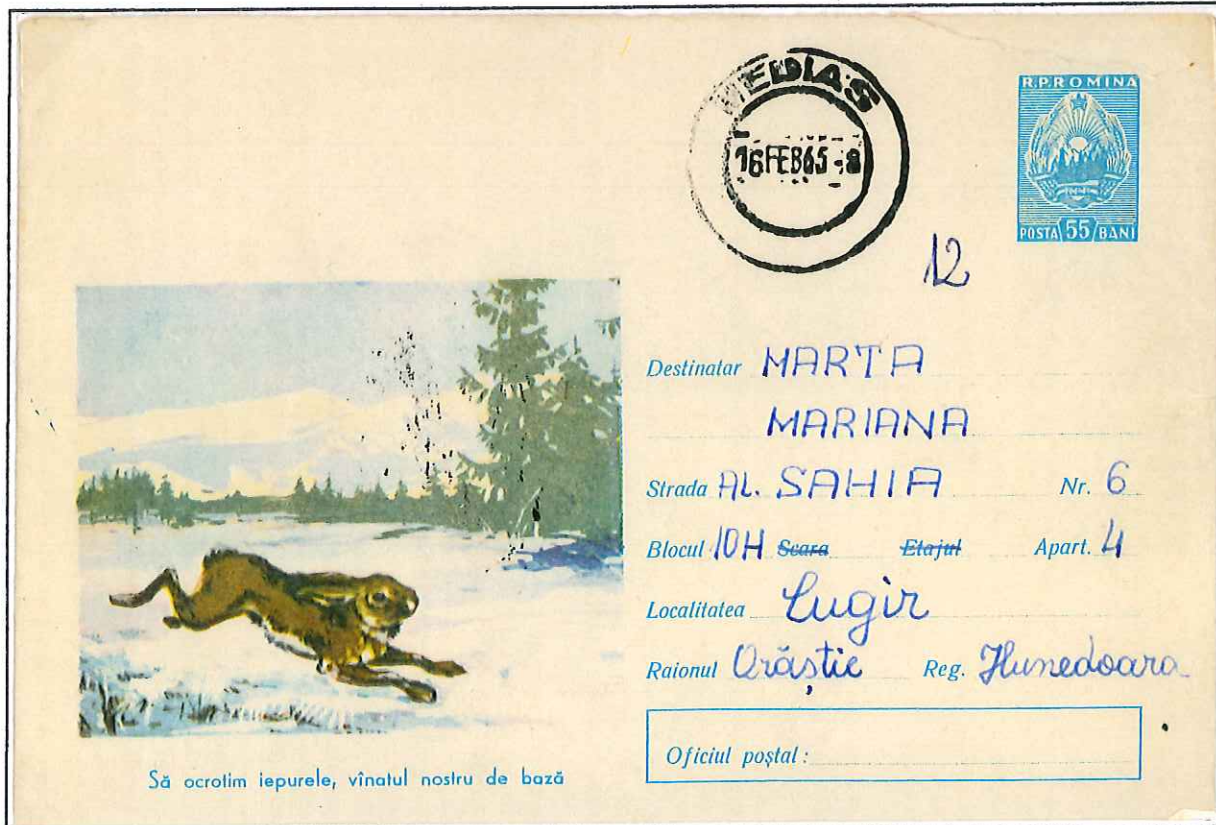 MEDIAS
16FEB65-8
R.P.ROMINA
POSTA 55 BANI
12
Destinatar MARTA
MARIANA
Strada AL. SAHIA Nr. 6
Blocul 10H Scara Etajul Apart. 4
Localitatea Cugir
Raionul Orăștie Reg. Hunedoara
Oficiul poștal:
Să ocrotim iepurele, vînatul nostru de bază